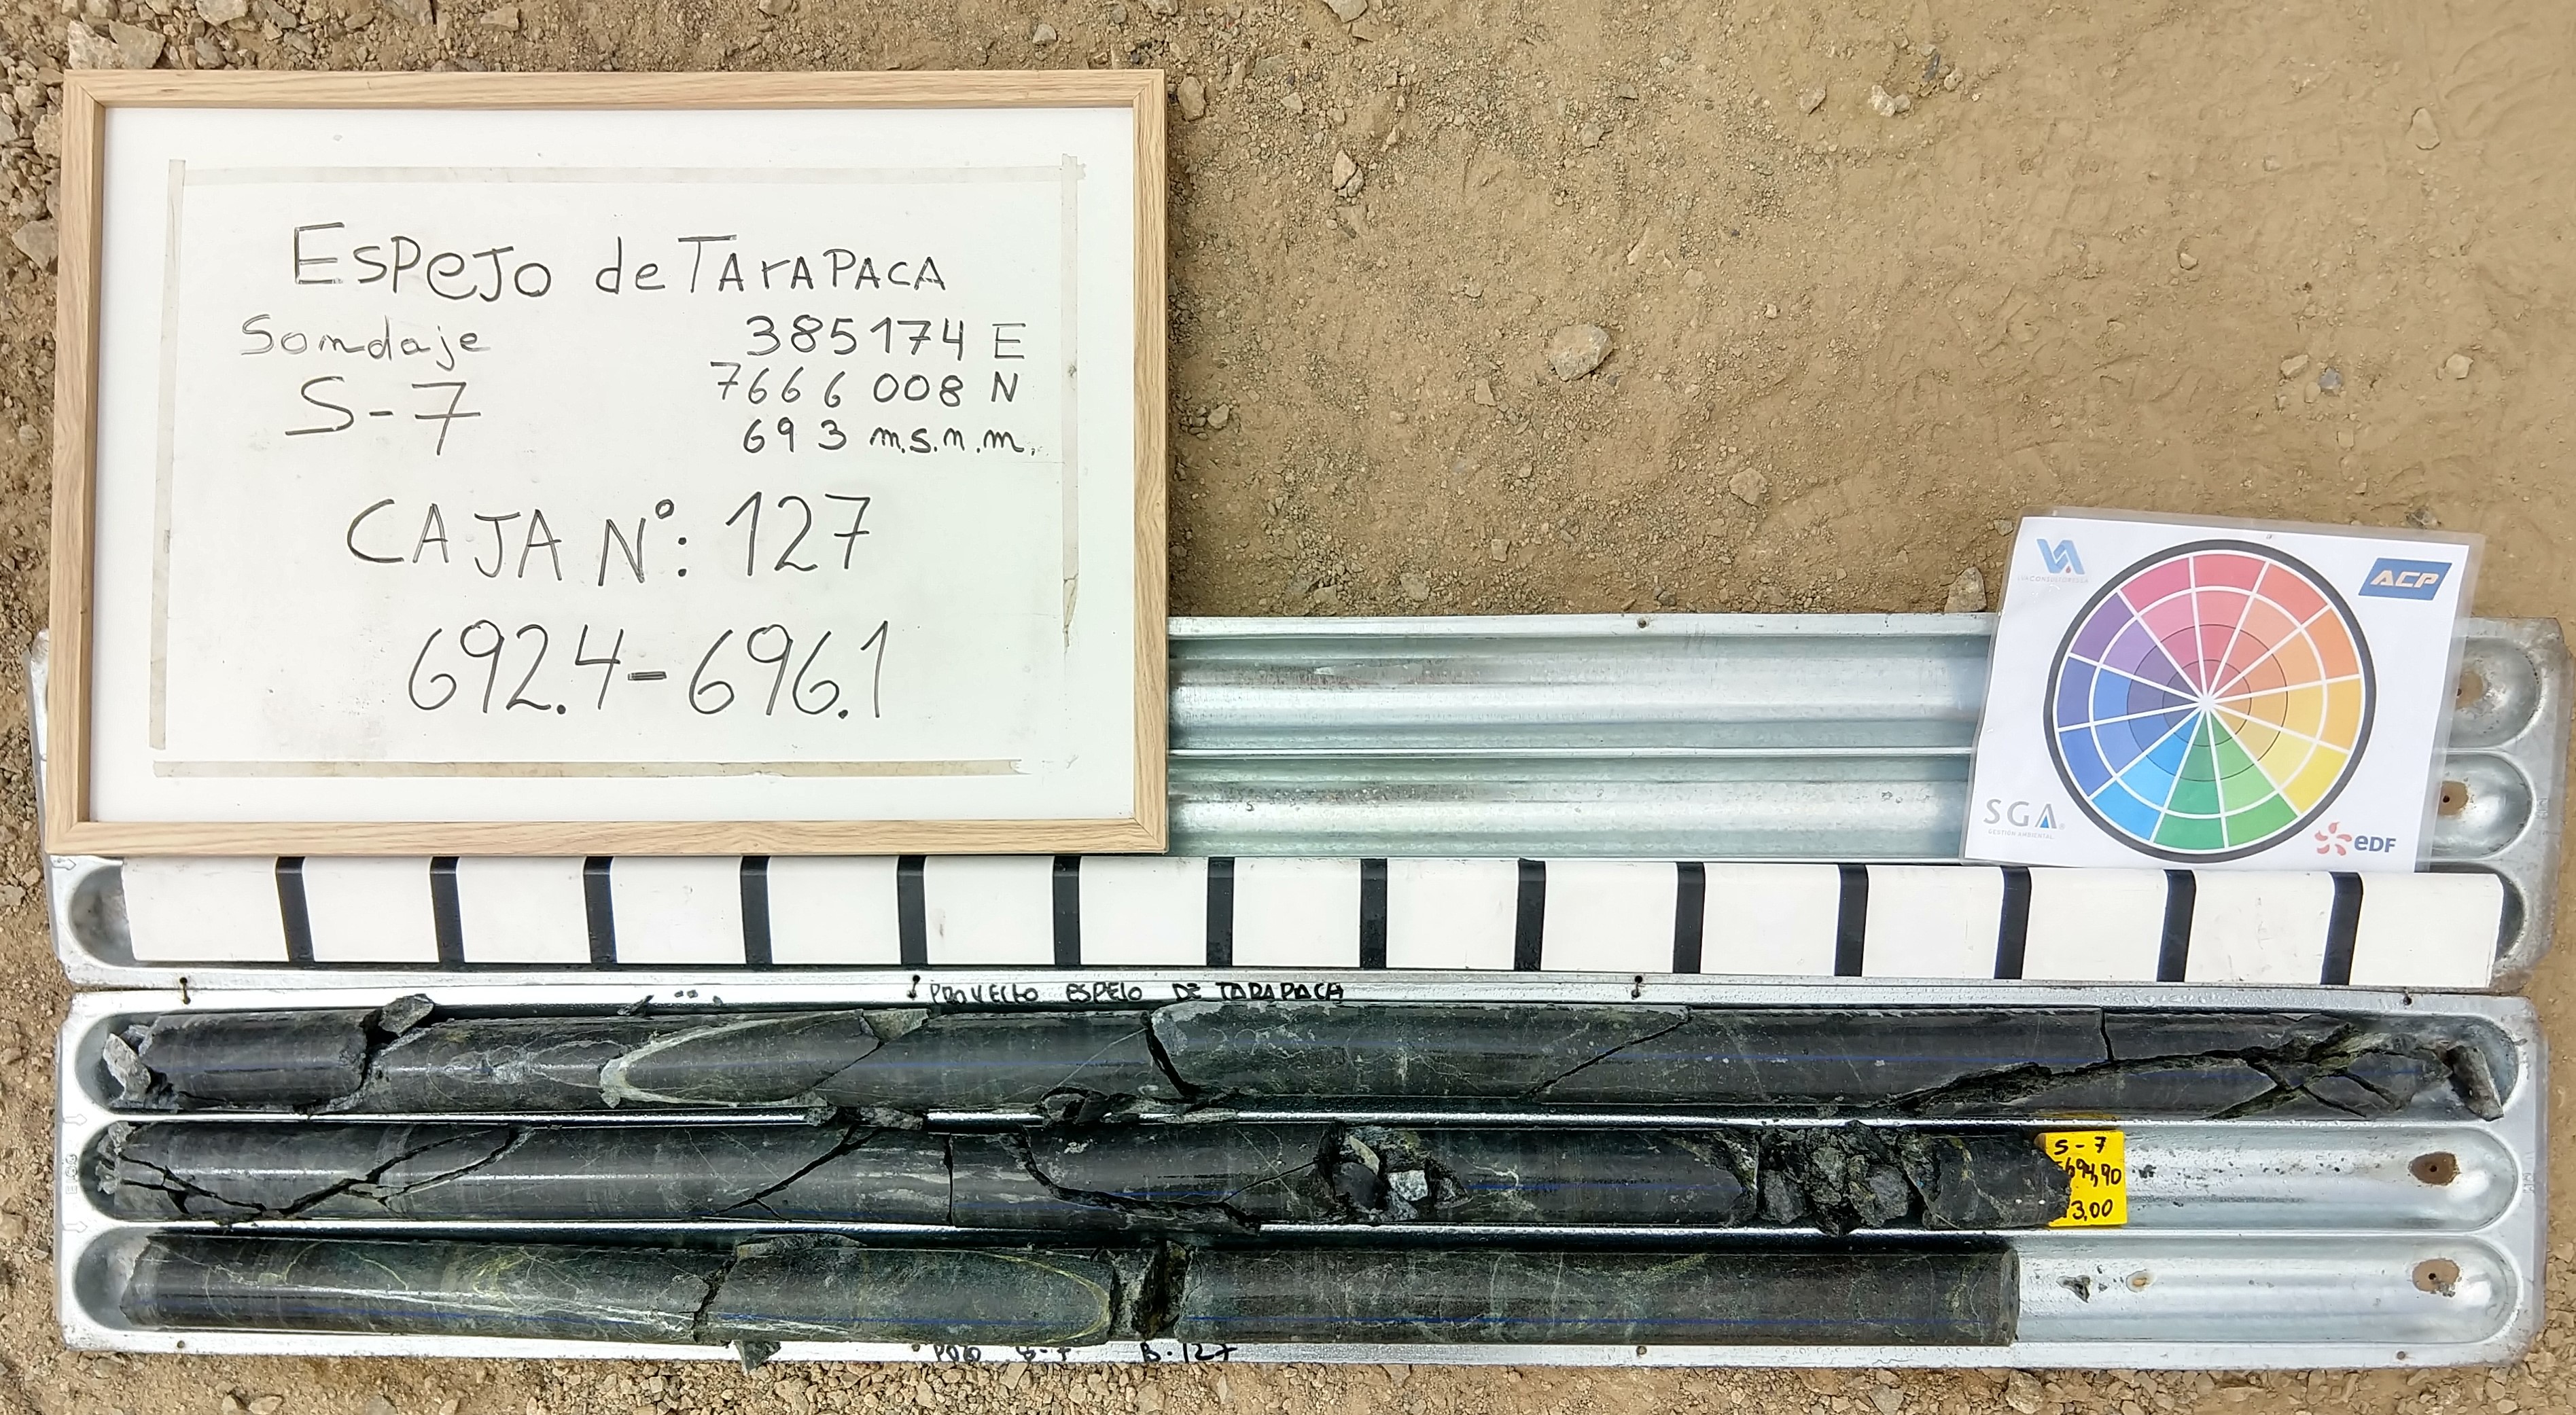 ESPEJO de TArAPACA
Sondaje
385174 E
7666 008 N
S-7
693 m.s.n.m.
CAJA N°: 127
692.4-696.1
ACP
SGA
GESTIÓN AMBIENTAL
eDF
PROYECTO ESPEJO DE TARAPACA
S-7
694,90
3,00
POZO S-7 B-127